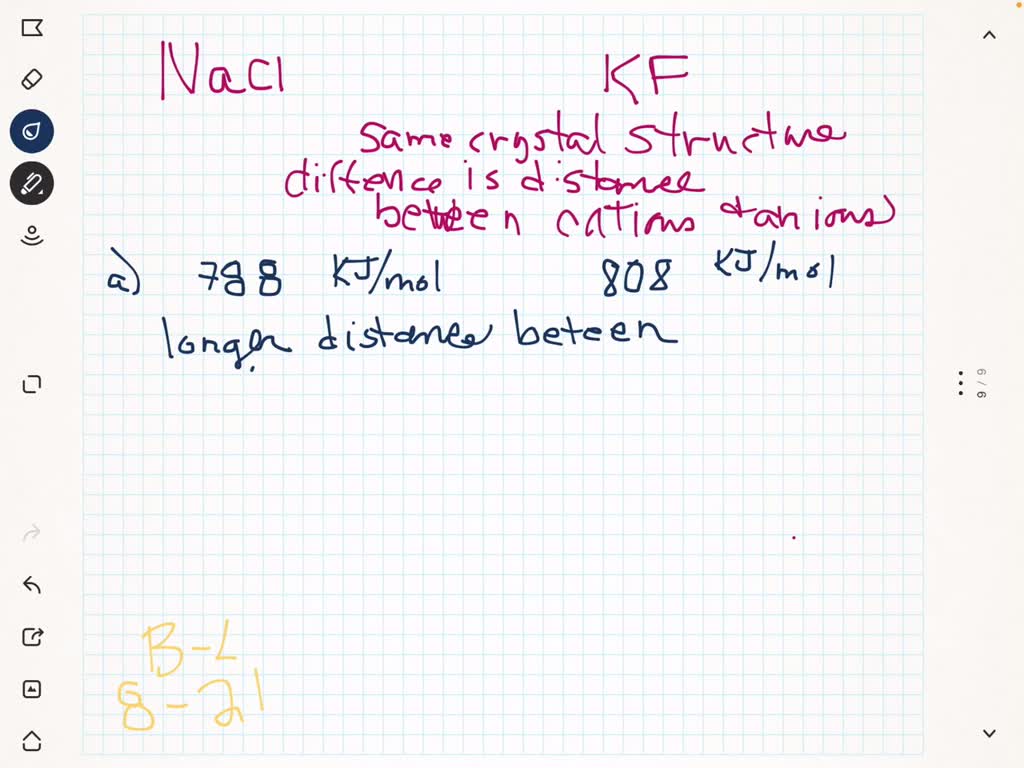 NaCl KF
same crystal structure
diffence is distance
between cations + anions
a) 788 KJ/mol 808 KJ/mol
longer distance beteen
6/6
B-L
8-21